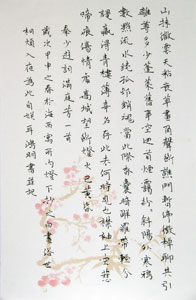 山抹微雲天粘衰草畫角聲斷譙門暫停征棹聊共引
離尊多少蓬萊舊事空回首煙靄紛紛斜陽外寒鴉
數點流水繞孤邨銷魂當此際香囊暗解羅帶輕分
謾贏得青樓薄倖名存此去何時見也襟袖上空惹
啼痕傷情處高城望斷燈火已黃昏
秦少遊詞滿庭芳一首
歲次甲申之春於海西寓所
入夜為此自娛耳鴻明書並記